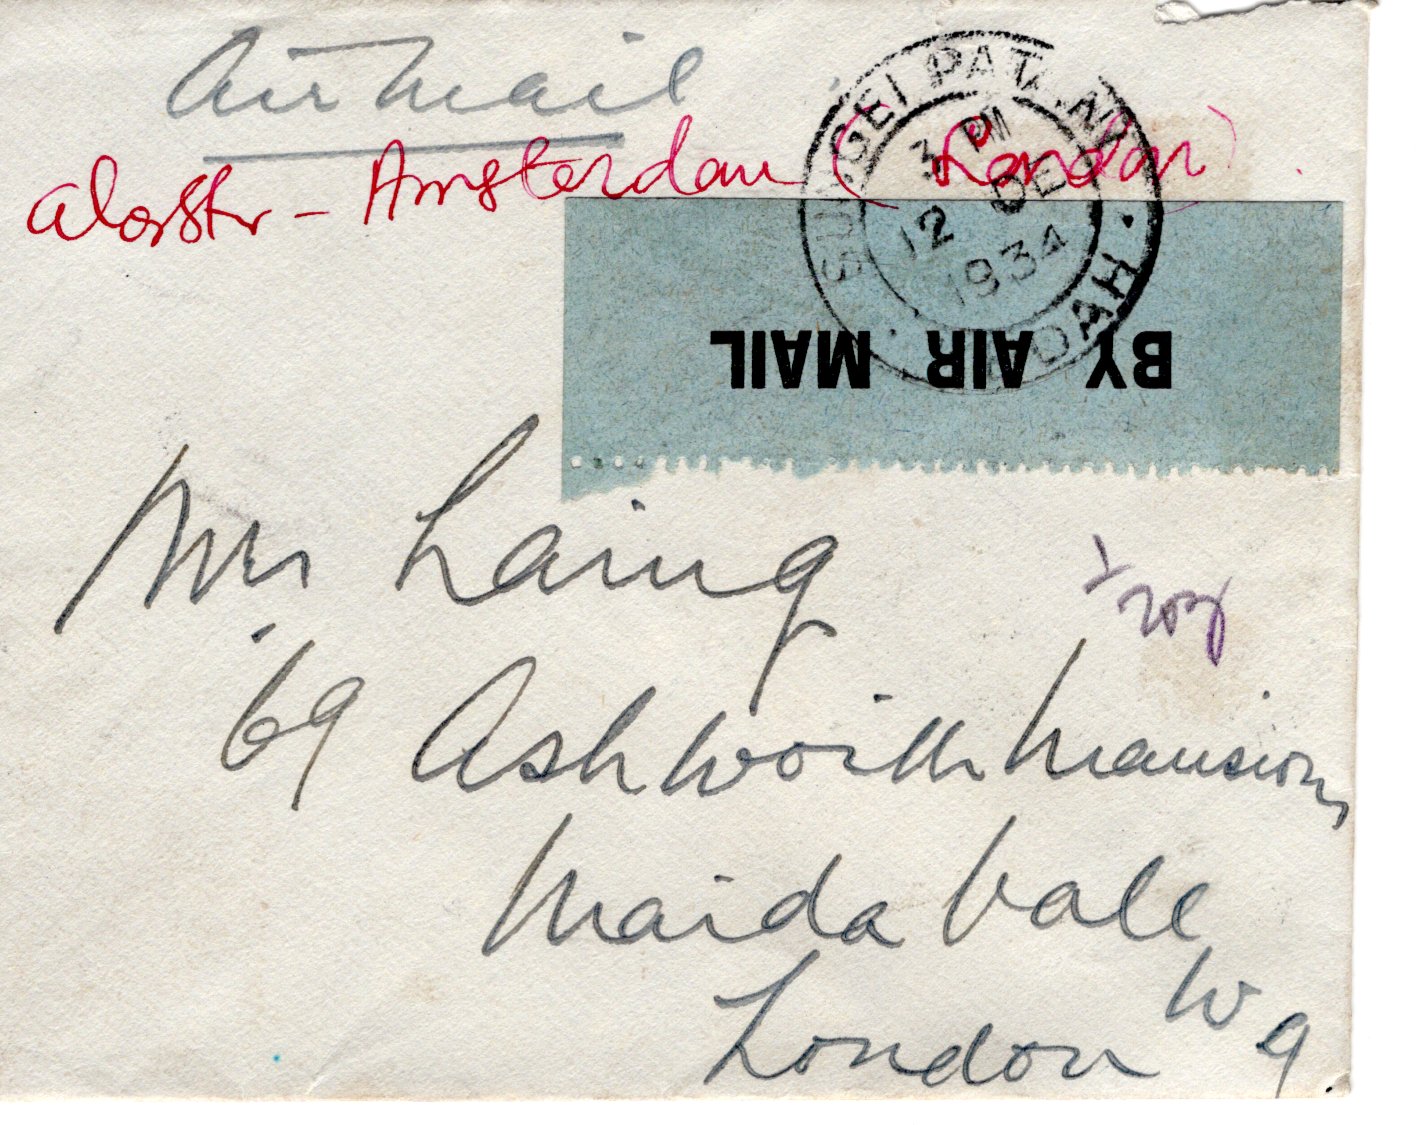 Air Mail
Alorstr - Amsterdam (London).
SUNGEI PATANI
3 PM
12 DE
1934
KEDAH
BY AIR MAIL
Mrs Laing
1/2 oz
69 Ashworth Mansions
Maida Vale
London W 9.